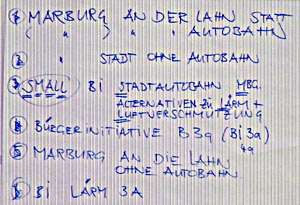 ① MARBURG AN DER LAHN STATT
( " ) " " AUTOBAHN
② " STADT OHNE AUTOBAHN
③ SMALL BI STADTAUTOBAHN MBG.
ALTERNATIVEN ZU LÄRM +
LUFTVERSCHMUTZUNG
④ BÜRGERINITIATIVE B3a (BI3a)
49
⑤ MARBURG AN DIE LAHN
OHNE AUTOBAHN.
⑥ BI LÄRM 3A